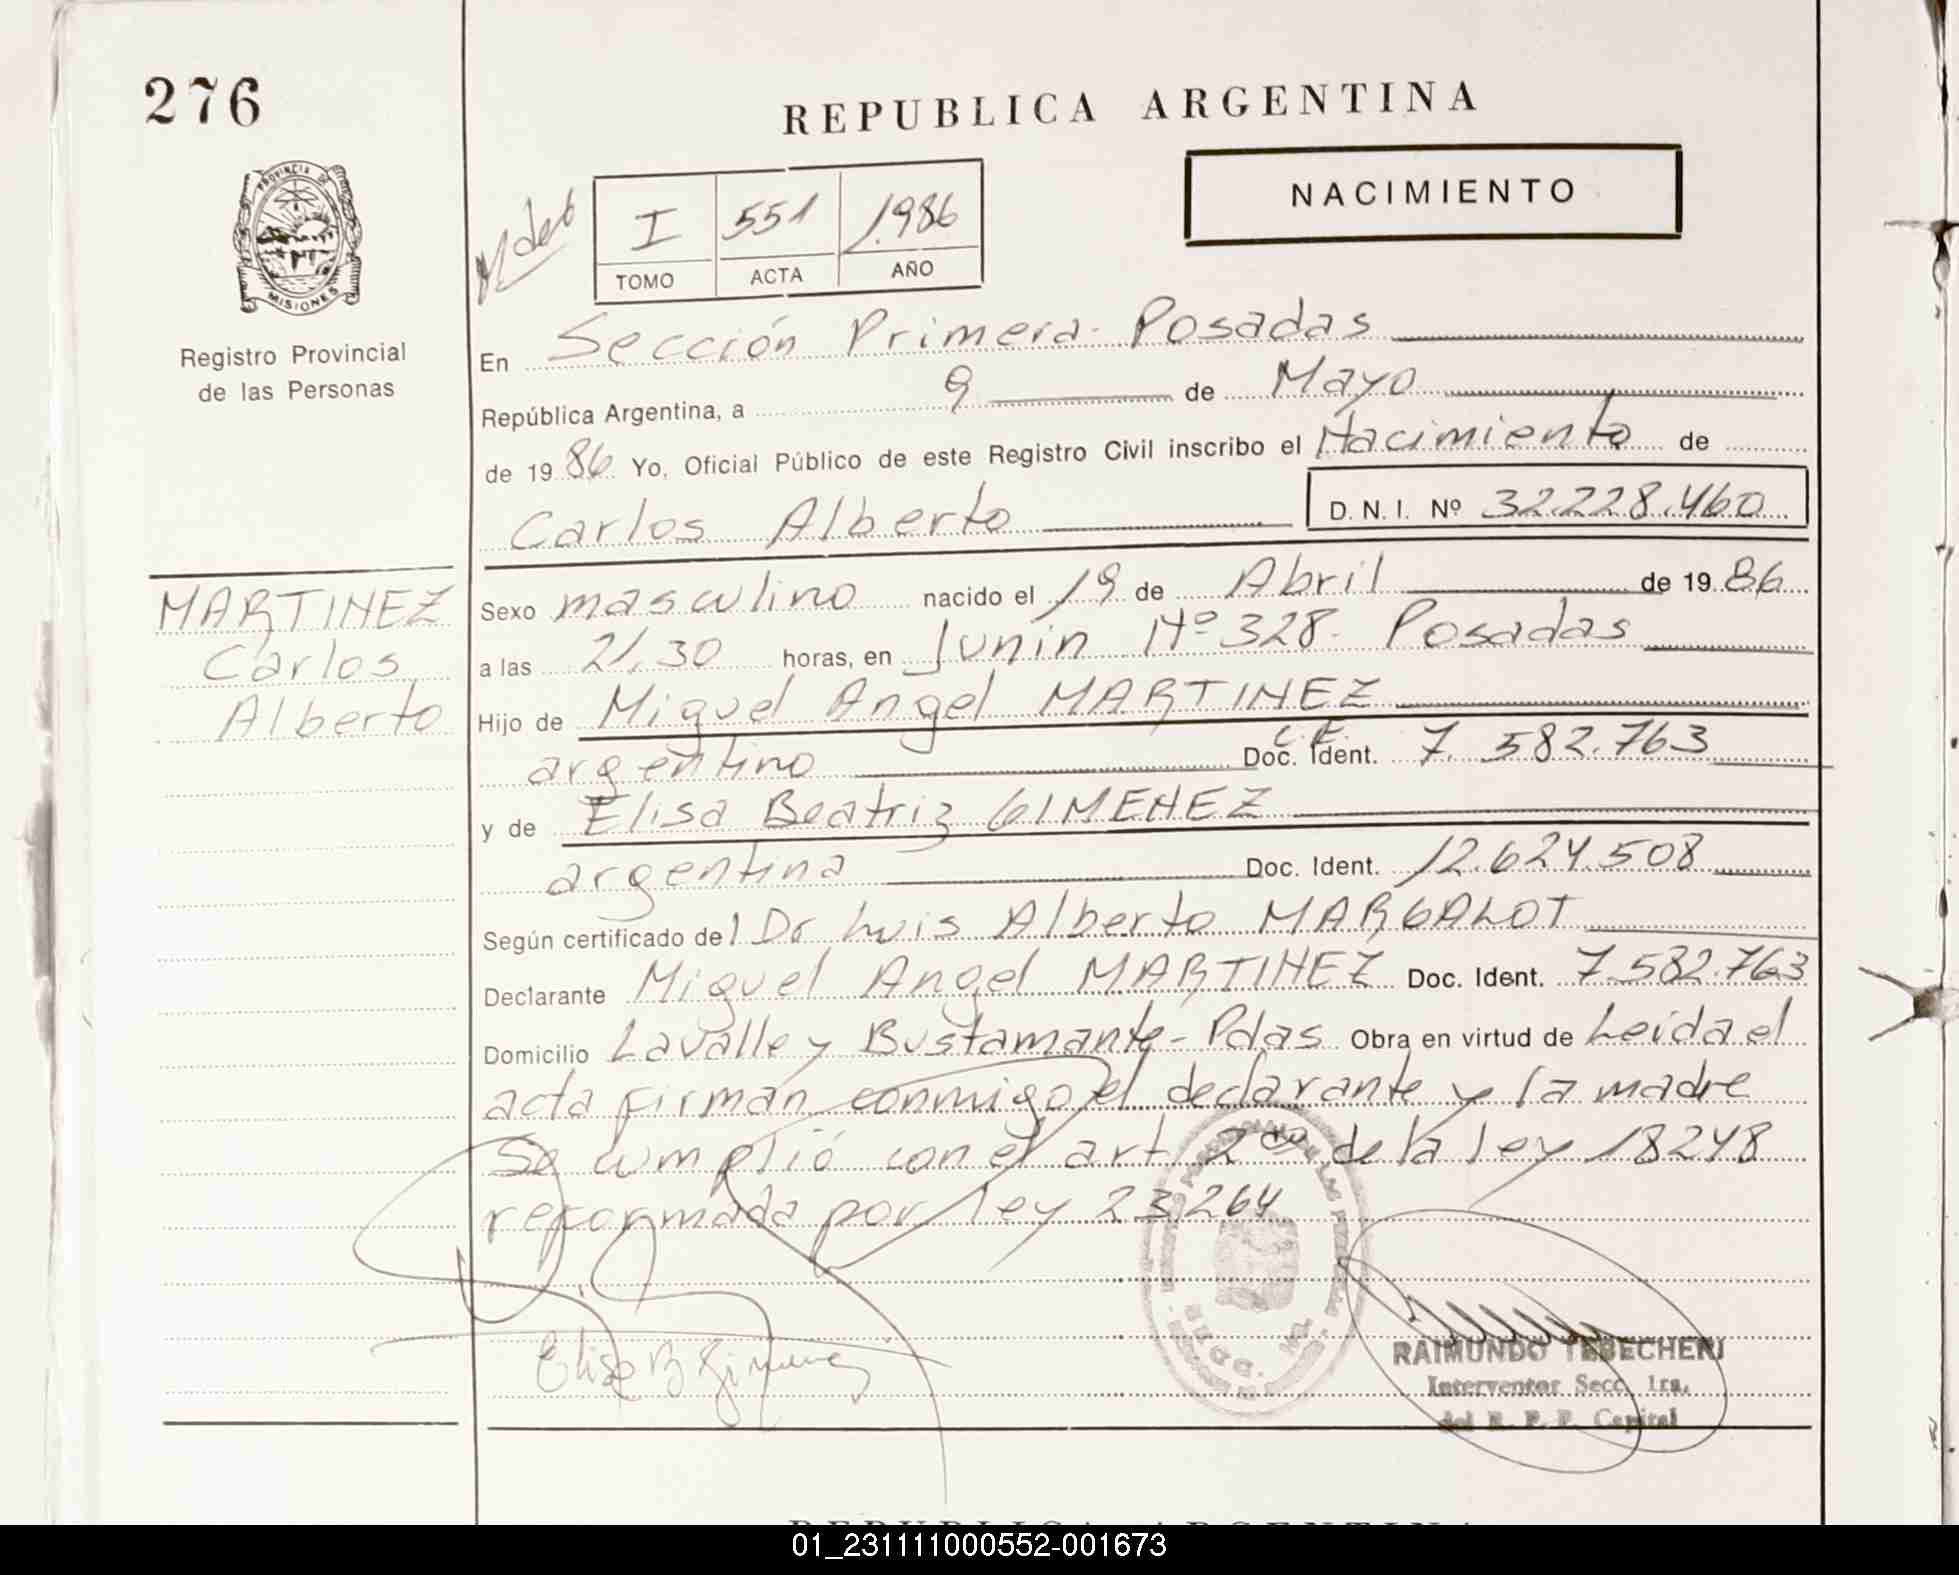 276
REPUBLICA ARGENTINA
NACIMIENTO
PROVINCIA DE
MISIONES
Registro Provincial
de las Personas
I 551 1986
TOMO ACTA AÑO
En Sección Primera - Posadas
República Argentina, a 9 de Mayo
de 1986 Yo, Oficial Público de este Registro Civil inscribo el Nacimiento de
Carlos Alberto D. N. I. Nº 32.228.460
MARTINEZ
Carlos
Alberto
Sexo masculino nacido el 19 de Abril de 1986
a las 21.30 horas, en Junin Nº 328 - Posadas
Hijo de Miguel Angel MARTINEZ
argentino Doc. Ident. L.E. 7.582.763
y de Elisa Beatriz GIMENEZ
argentina Doc. Ident. 12.624.508
Según certificado del Dr Luis Alberto MARGALOT
Declarante Miguel Angel MARTINEZ Doc. Ident. 7.582.763
Domicilio Lavalle y Bustamante - Pdas Obra en virtud de Leida el
acta firman conmigo el declarante y la madre
Se cumplió con el art. 2do de la ley 18248
reformada por ley 23.264
Elisa B Gimenez
RAIMUNDO TEBECHERI
Interventor Secc. 1ra.
del R. P. P. Capital
REPUBLICA ARGENTINA
01_231111000552-001673